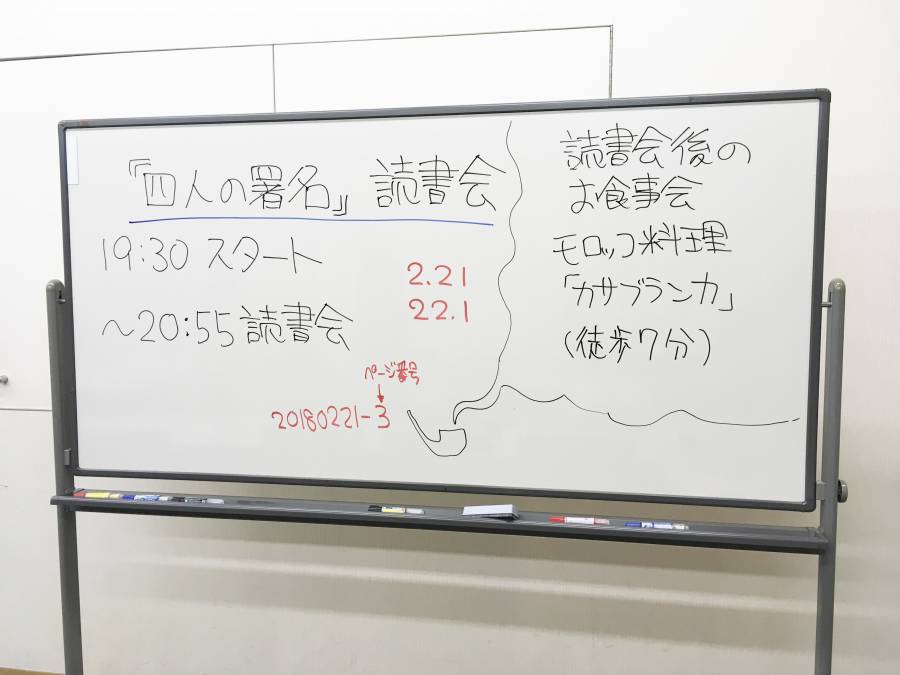 『四人の署名』読書会
19:30 スタート
～20:55 読書会
2.21
22.1
ページ番号
20180221-3
読書会後の
お食事会
モロッコ料理
「カサブランカ」
(徒歩7分)